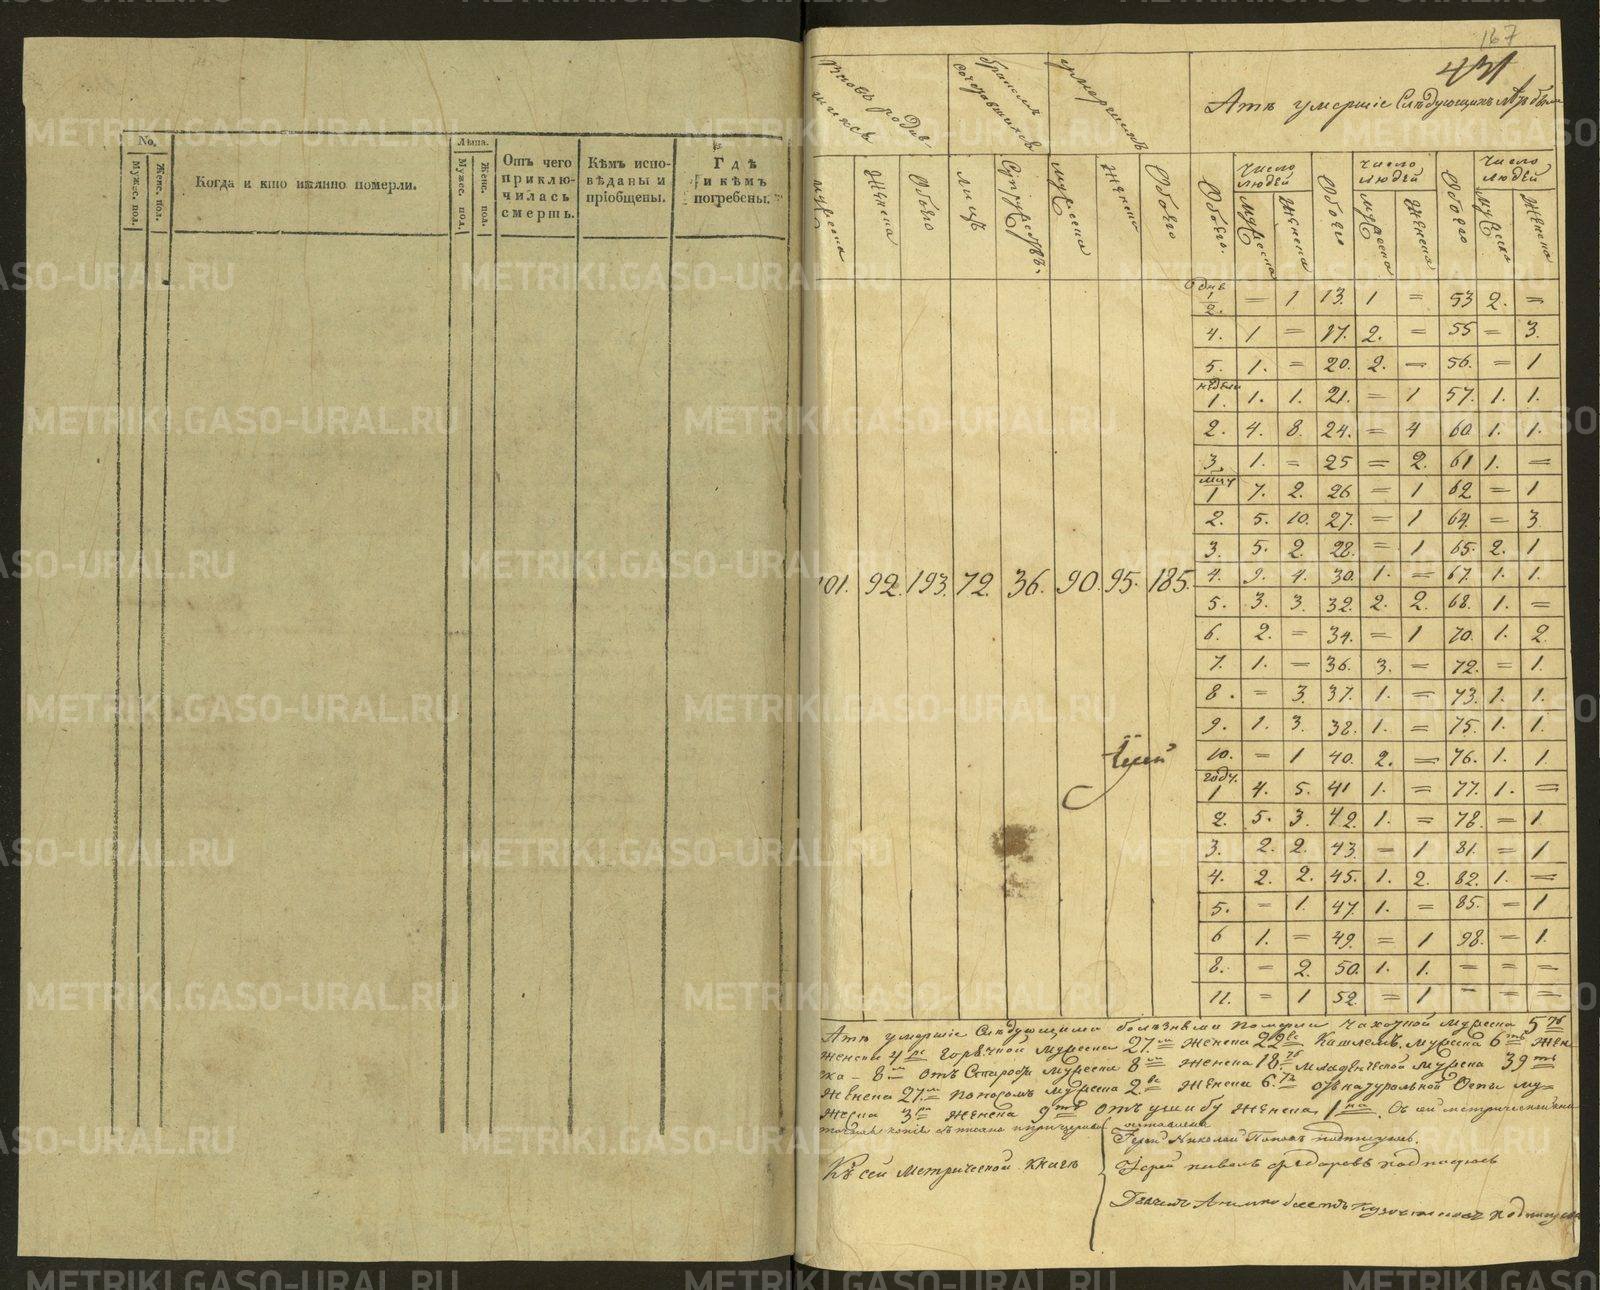 No.
Мужес. пол.
Женс. пол.
Когда и кто имянно померли.
Лѣта.
Мужес. пол.
Женс. пол.
Отъ чего приклю-
чилась смерть.
Кѣмъ испо-
вѣданы и
пріобщены.
Гдѣ
и кѣмъ
погребены.
167
431
умершіе
число людей
число людей
число людей
Обоего
Мужеска
Женска
Обоего
лицъ
Супружествъ.
Мужеска
Женска
Обоего
Обоего.
Мужеска
Женска
Обоего
Мужеска
Женска
Обоего
Мужеска
Женска
1/2. = 1 13. 1 = 53 2. =
4. 1 = 17. 2. = 55 = 3.
5. 1. = 20. 2. = 56. = 1
недели
1. 1. 1. 21. = 1 57. 1. 1.
2. 4. 8. 24. = 4 60. 1. 1.
3. 1. = 25 = 2. 61 1. =
1 7. 2. 26 = 1 62 = 1
2. 5. 10. 27. = 1 64. = 3.
3. 5. 2. 28. = 1 65. 2. 1
101. 92. 193. 72. 36. 90. 95. 185.
4. 9. 4. 30. 1. = 67. 1. 1.
5. 3. 3. 32. 2. 2. 68. 1. =
6. 2. = 34. = 1 70. 1. 2.
7. 1. = 36. 3. = 72. = 1.
8. = 3. 37. 1. = 73. 1. 1.
9. 1. 3. 38. 1. = 75. 1. 1.
Іерей
10. = 1 40. 2. = 76. 1. 1
году.
1 4. 5. 41 1. = 77. 1. =
2. 5. 3. 42. 1. = 78. = 1.
3. 2. 2. 43. = 1 81. = 1
4. 2. 2. 45. 1. 2. 82. 1. =
5. = 1. 47. 1. = 85. = 1
6 1. = 49. = 1 98. = 1.
8. = 2. 50. 1. 1. = = =
11. = 1 52. = 1 = = =
умершіе Слѣдующими болѣзньми померли чахоткой Мужеска 5
Женска 4 горячкой Мужеска 27 Женска 22 Кашлемъ Мужеска 6 Жен
ска 8 отъ Старости Мужеска 8 Женска 18 Младенческой Мужеска 39
Женска 27 поносомъ Мужеска 2 Женска 6 отъ натуральной Оспы Му=
жеска 3 Женска 9 отъ ушибу Женска 1 Съ сей метрической
копія
оставлена
Іерей Николай Поповъ подписуюсь.
Къ сей Метрической книгѣ
Іерей Павелъ Ѳедоровъ подписуюсь
METRIKI.GASO-URAL.RU